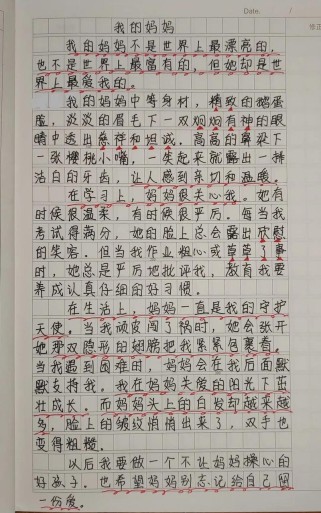 Date. /
我的妈妈
我的妈妈不是世界上最漂亮的,
也不是世界上最富有的,但她却是世
界上最爱我的。
我的妈妈中等身材,精致的鹅蛋
脸,淡淡的眉毛下一双炯炯有神的眼
睛中透出慈祥和坦诚。高高的鼻梁下
一张樱桃小嘴,一笑起来就露出一排
洁白的牙齿,让人感到亲切和温暖。
在学习上,妈妈很关心我。她有
时候很温柔,有时候很严厉。每当我
考试得满分,她的脸上总会露出欣慰
的笑容。但当我作业粗心或草草了事
时,她总是严厉地批评我,教育我要
养成认真仔细的好习惯。
在生活上,妈妈一直是我的守护
天使。当我顽皮闯了祸时,她会张开
她那双隐形的翅膀把我紧紧包裹着。
当我遇到困难时,妈妈会在我后面默
默支持我。我在妈妈关爱的阳光下茁
壮成长。而妈妈头上的白发却越来越
多,脸上的皱纹悄悄出来了,双手也
变得粗糙。
以后我要做一个不让妈妈操心的
好孩子。也希望妈妈别忘记给自己留
一份爱。